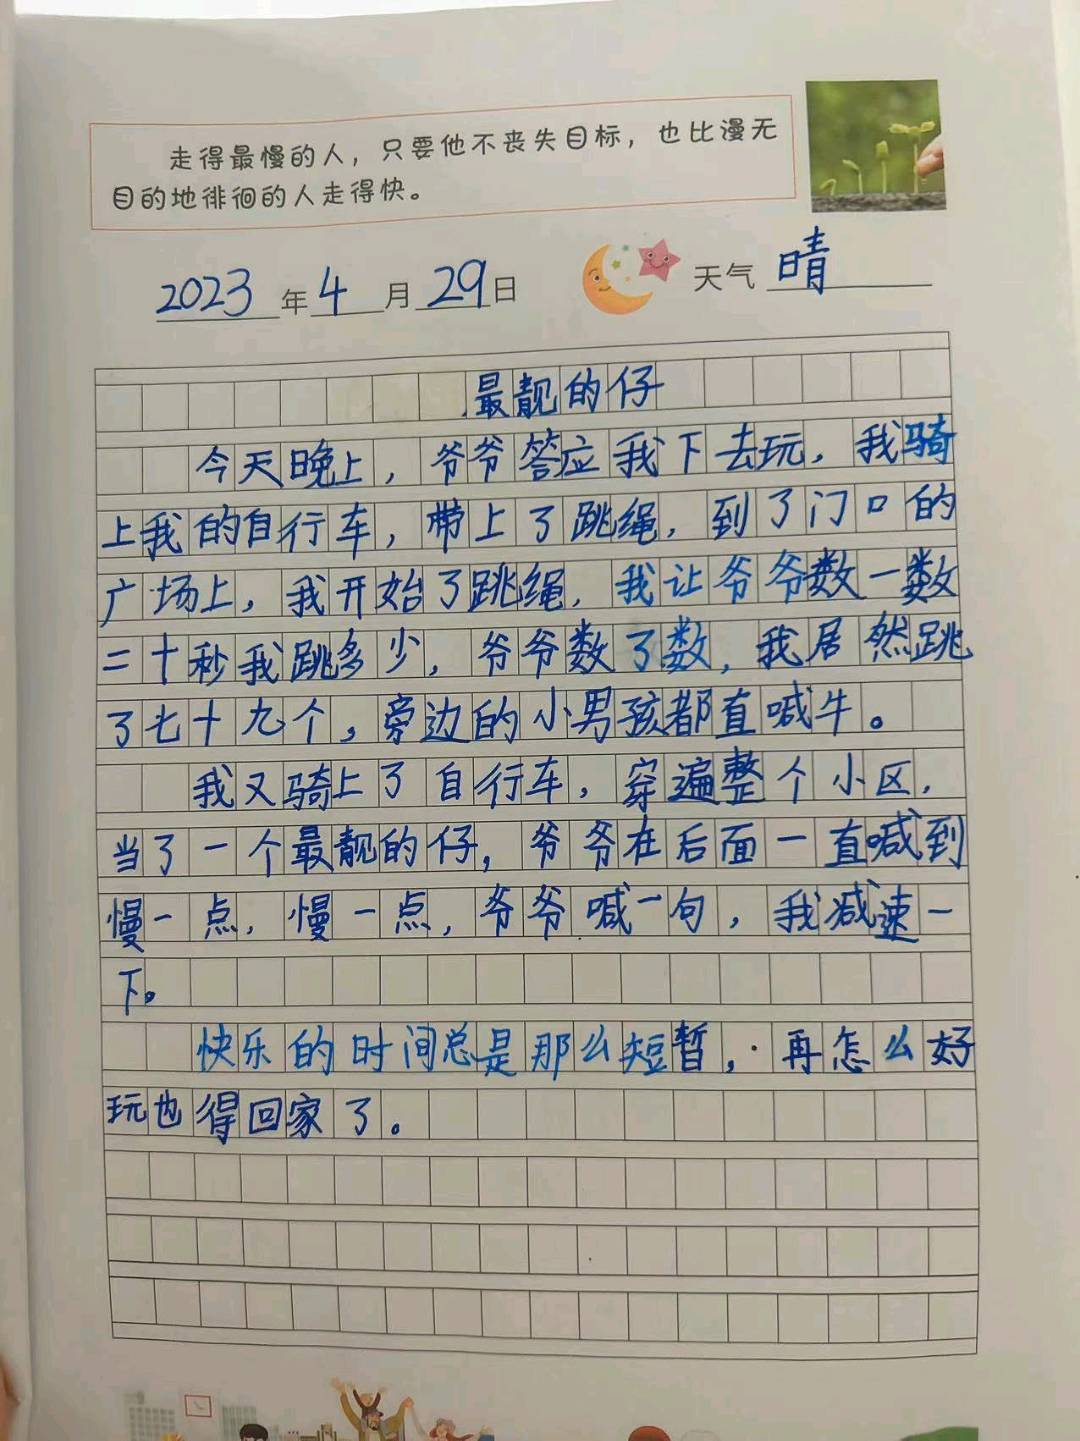 走得最慢的人，只要他不丧失目标，也比漫无
目的地徘徊的人走得快。
2023年4月29日 天气 晴
最靓的仔
今天晚上，爷爷答应我下去玩，我骑
上我的自行车，带上了跳绳，到了门口的
广场上，我开始了跳绳，我让爷爷数一数
二十秒我跳多少，爷爷数了数，我居然跳
了七十九个，旁边的小男孩都直喊牛。
我又骑上了自行车，穿遍整个小区，
当了一个最靓的仔，爷爷在后面一直喊到
慢一点，慢一点，爷爷喊一句，我减速一
下。
快乐的时间总是那么短暂，再怎么好
玩也得回家了。